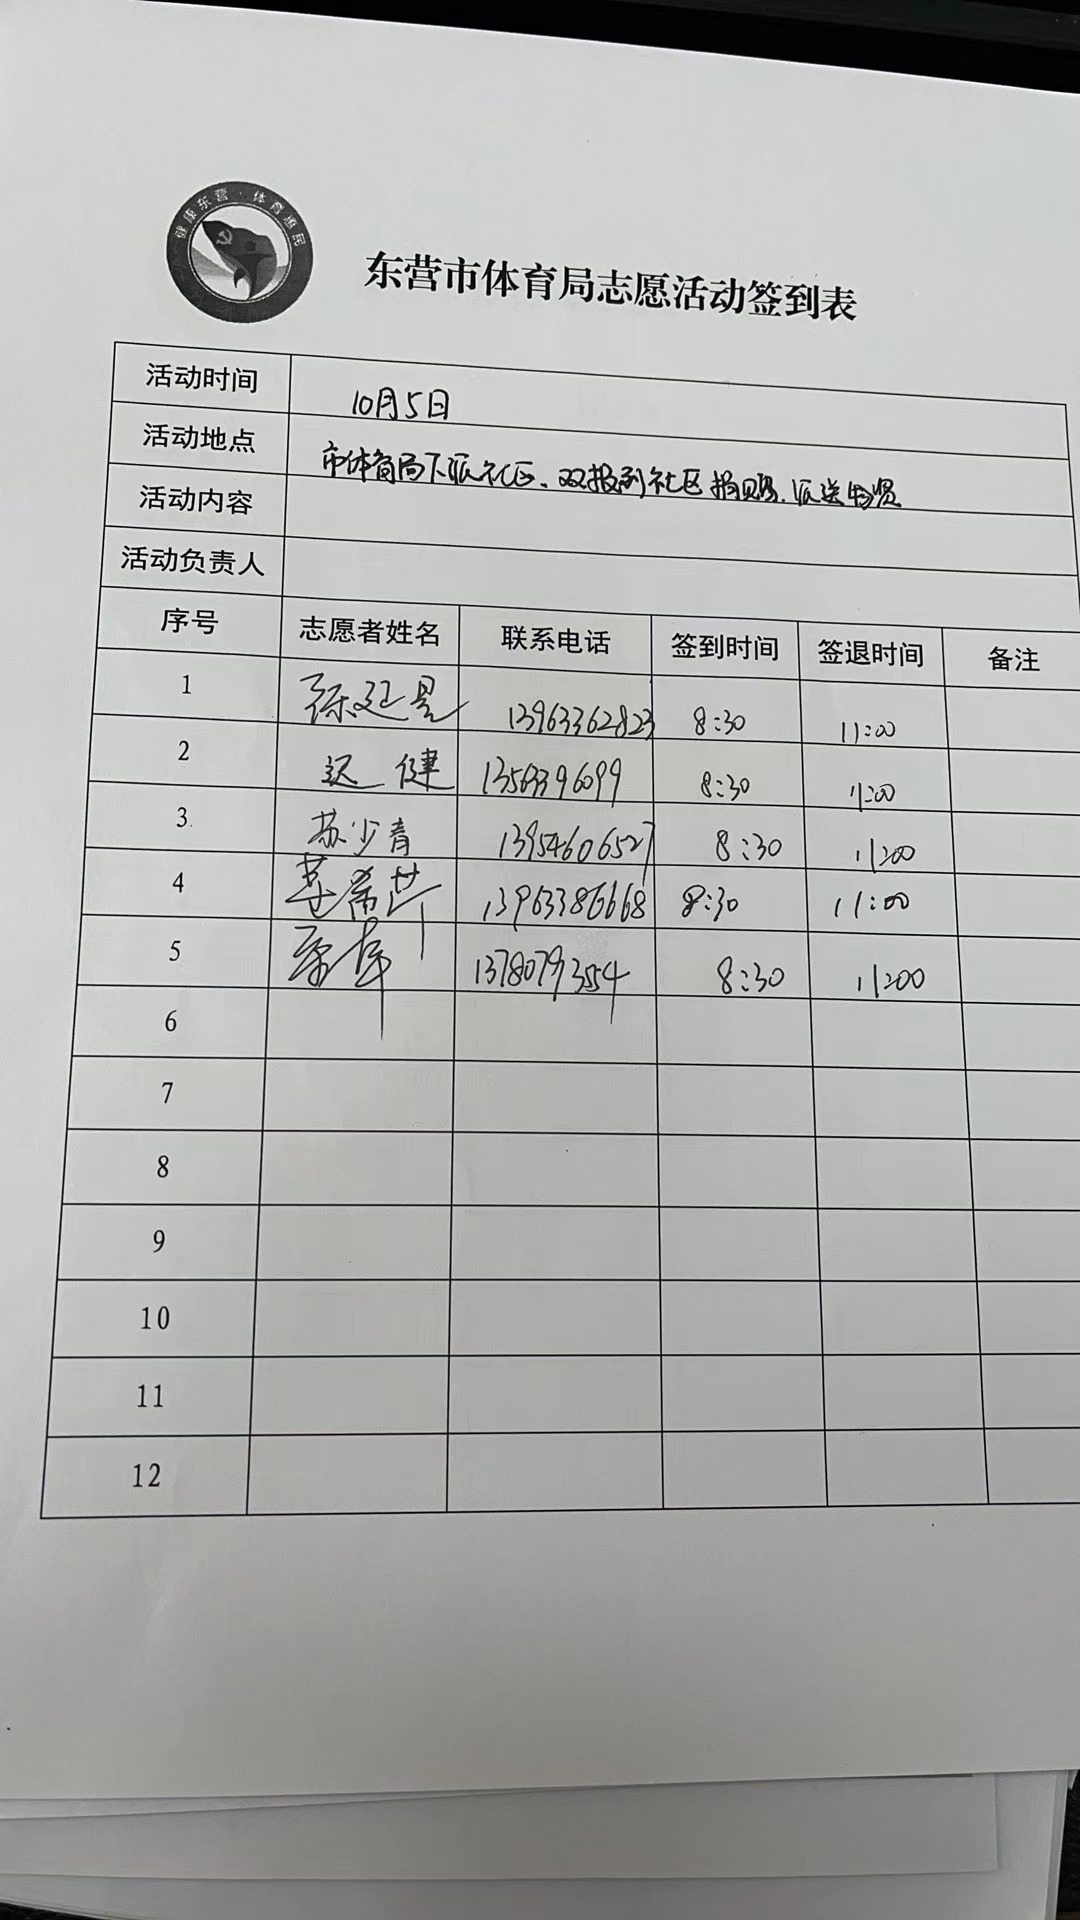 健康东营·体育惠民
东营市体育局志愿活动签到表
活动时间 10月5日
活动地点 市体育局下派社区、双报到社区捐赠、派送物资
活动内容
活动负责人
序号 志愿者姓名 联系电话 签到时间 签退时间 备注
1 13963362823 8:30 11:00
2 迟健 13563396099 8:30 11:00
3 苏少青 13954606527 8:30 11:00
4 13963386668 8:30 11:00
5 1378079354 8:30 11:00
6
7
8
9
10
11
12